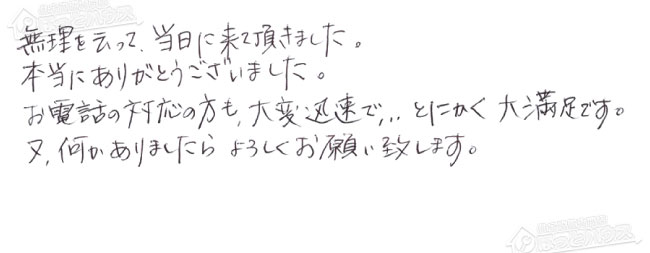 無理を云って、当日に来て頂きました。
本当にありがとうございました。
お電話の対応の方も、大変迅速で、.. とにかく大満足です。
又、何かありましたらよろしくお願い致します。